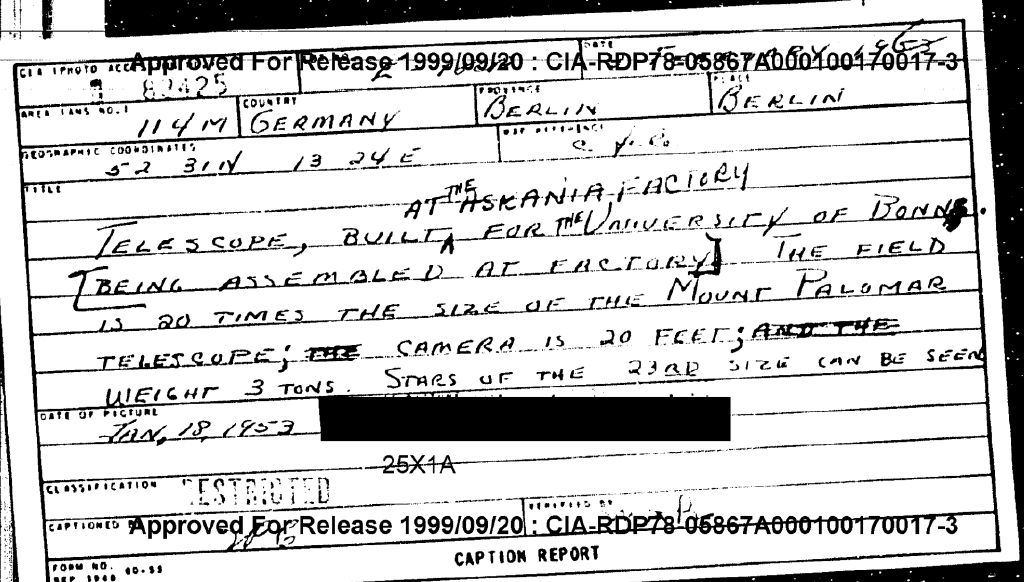 CIA (PHOTO
Approved For Release 1999/09/20 : CIA-RDP78-05867A000100170017-3
DATE
82425
AREA (ANS NO.)
114M
COUNTRY
GERMANY
PROVINCE
BERLIN
PLACE
BERLIN
GEOGRAPHIC COORDINATES
52 31N 13 24E
MAP REFERENCE
TITLE
AT THE ASKANIA FACTORY
TELESCOPE, BUILT FOR THE UNIVERSITY OF BONN.
[BEING ASSEMBLED AT FACTORY] THE FIELD
IS 20 TIMES THE SIZE OF THE MOUNT PALOMAR
TELESCOPE; THE CAMERA IS 20 FEET; AND THE
WEIGHT 3 TONS. STARS OF THE 23RD SIZE CAN BE SEEN
DATE OF PICTURE
JAN, 18, 1953
25X1A
CLASSIFICATION
RESTRICTED
CAPTIONED
VERIFIED BY
Approved For Release 1999/09/20 : CIA-RDP78-05867A000100170017-3
CAPTION REPORT
FORM NO.
SEP 1948 60-55